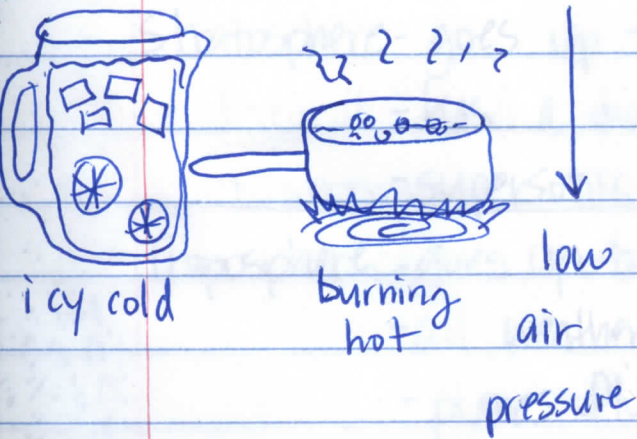 icy cold
burning
hot
low
air
pressure